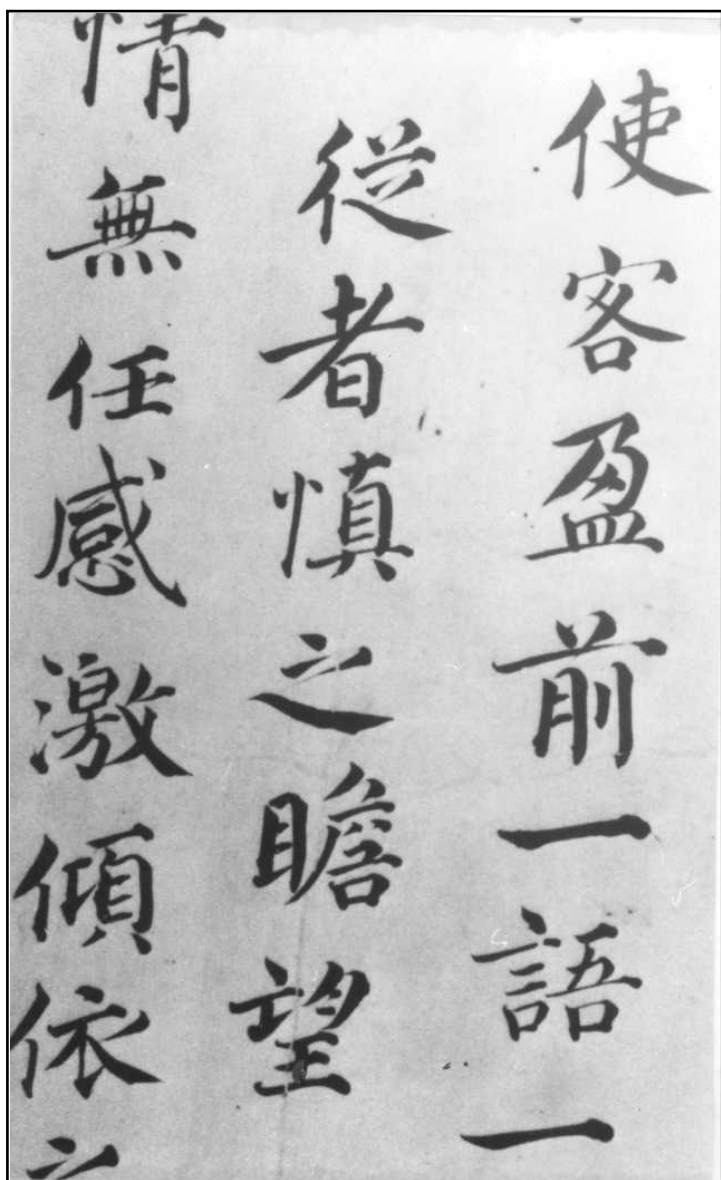 使客盈前一語一
従者慎之瞻望
情無任感激傾依之